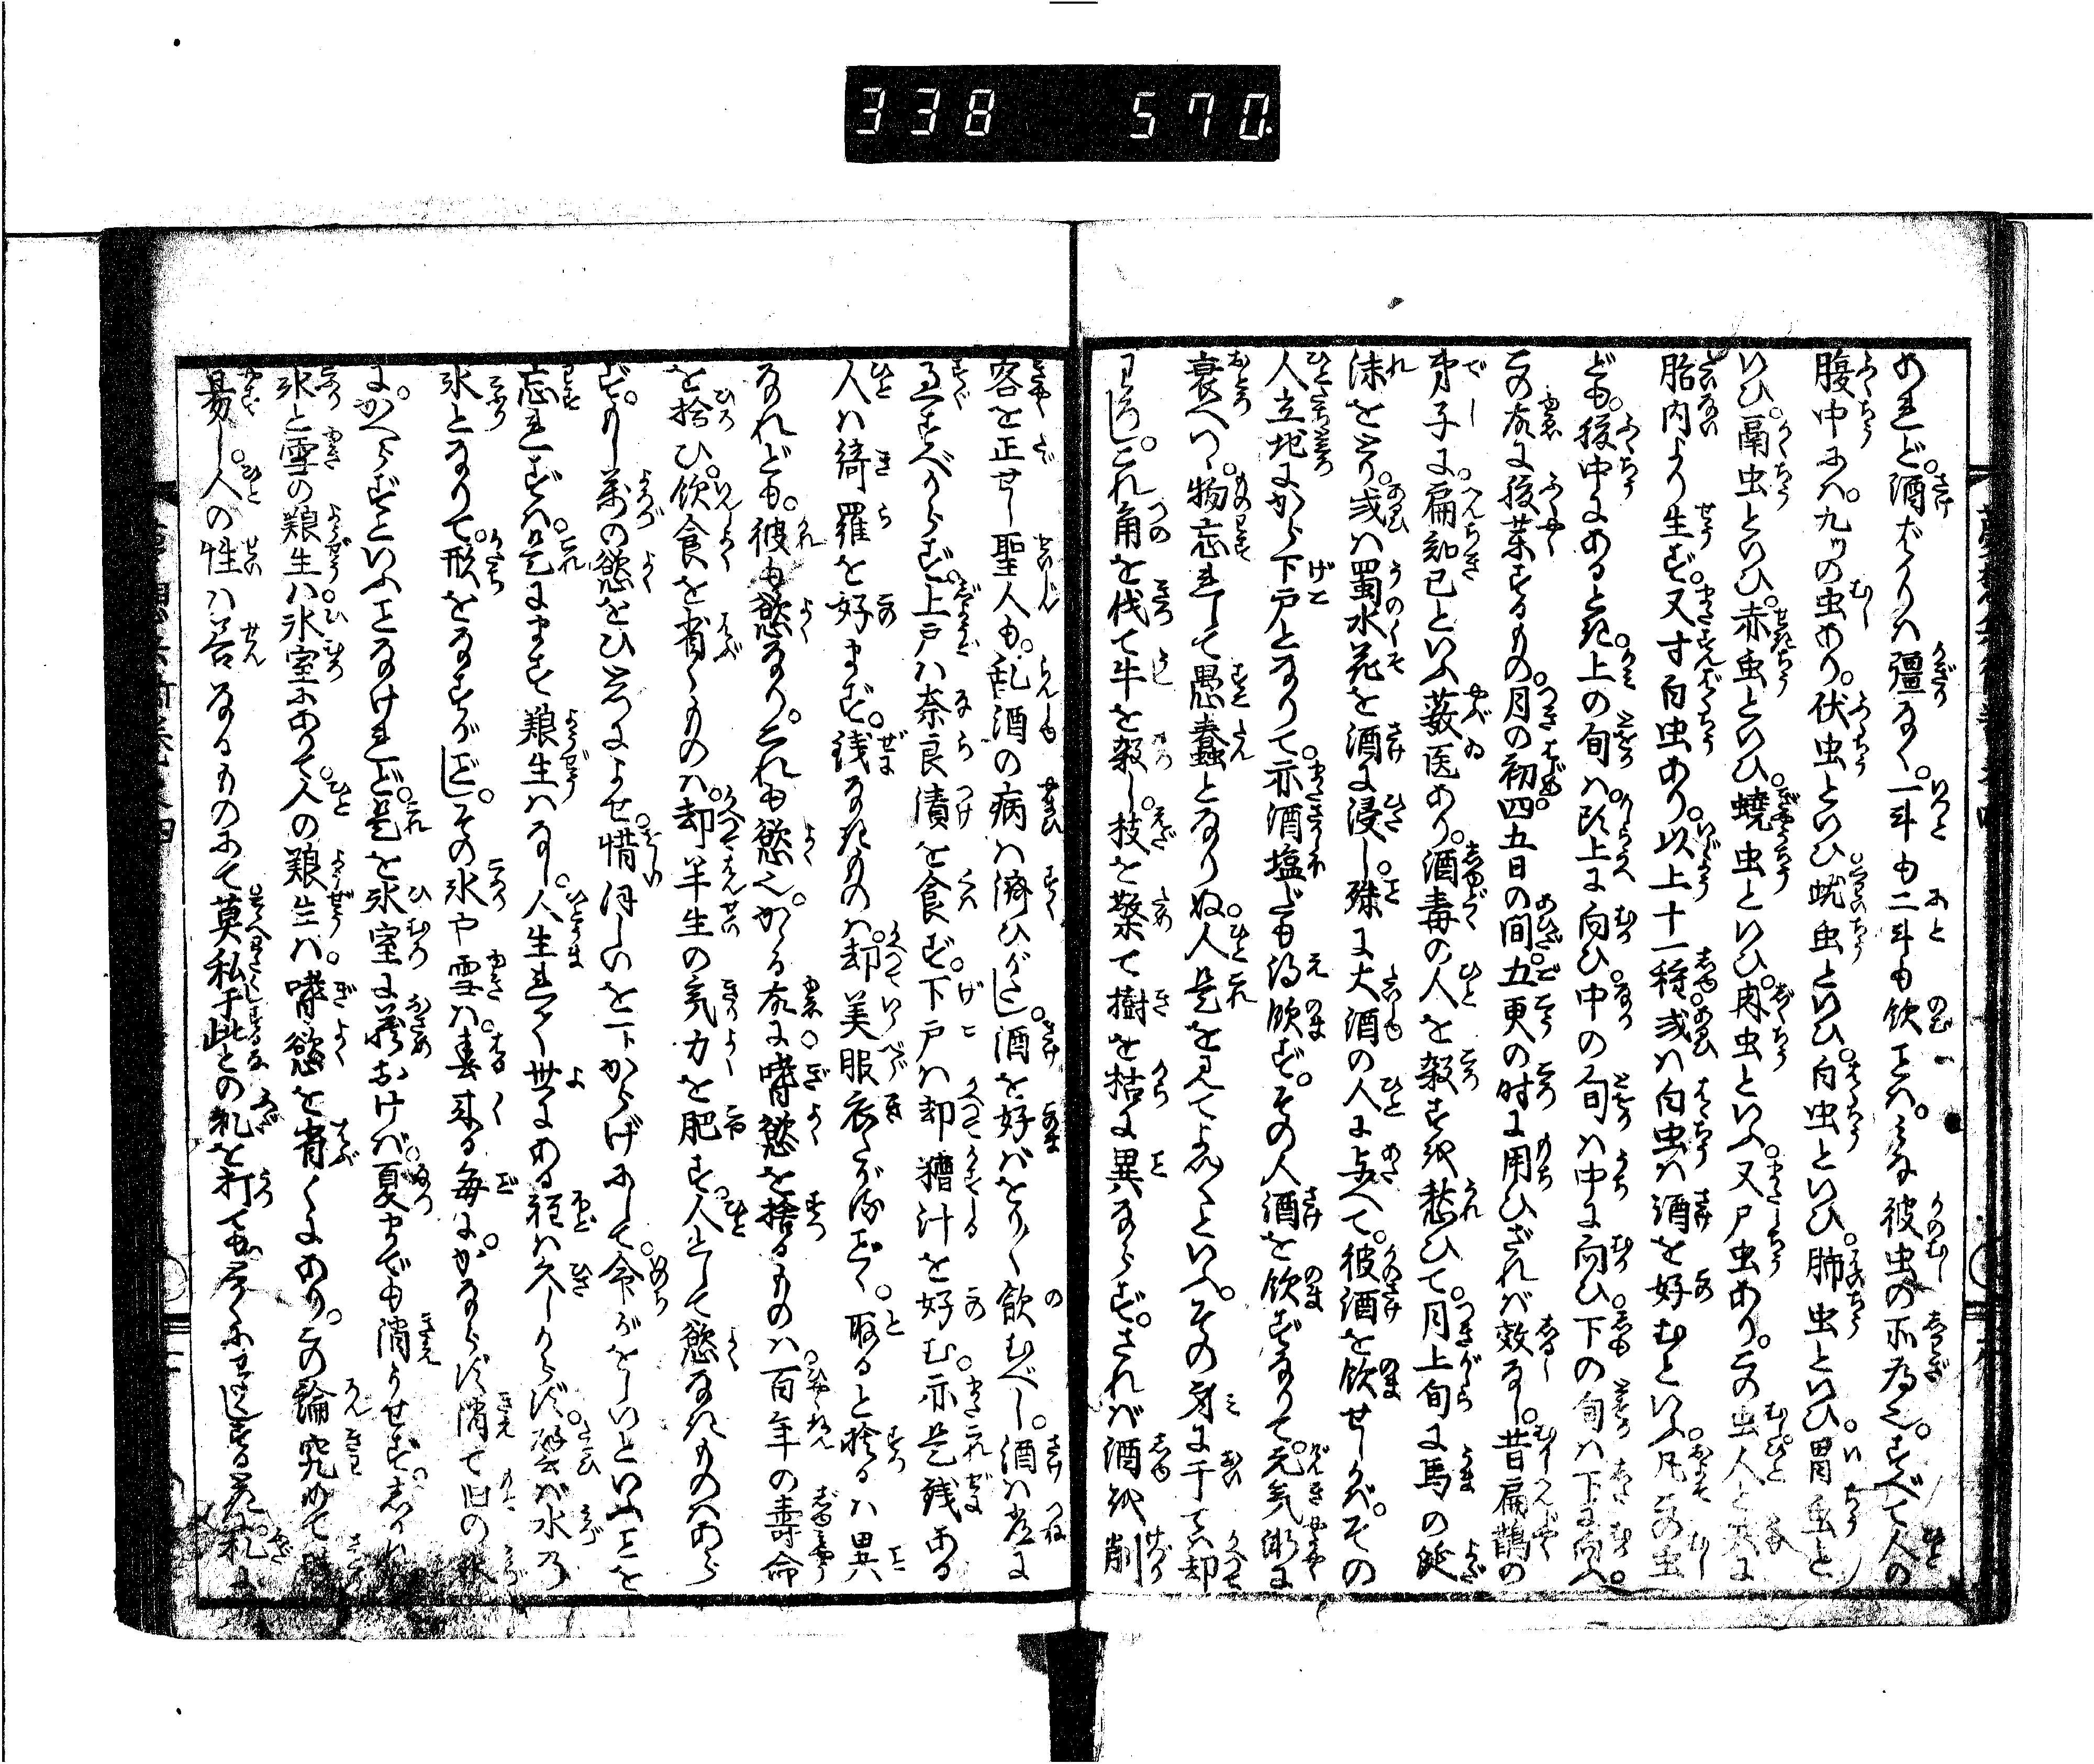 338 570
あれど。酒ばかりは彊なく。一斗も二斗も飲ことは。みな彼虫の所為也。すべて人の
腹中には。九ツの虫あり。伏虫といひ蚘虫といひ。白虫といひ。肺虫といひ。胃虫と
いひ。鬲虫といひ。赤虫といひ。蟯虫といひ。肉虫といふ。又尸虫あり。この虫人と共に
胎内より生ず。又寸白虫あり。以上十一種。或は白虫は酒を好むといふ。凡この虫
ども。腹中にあるとき。上の旬は。頭上に向ひ。中の旬は中に向ひ。下の旬は下に向ふ。
この故に腹薬するもの。月の初四五日の間。五更の時に用ひざれば效なし。昔扁鵲の
弟子に。扁知己といふ藪医あり。酒毒の人を殺すを愁ひて。月上旬に馬の涎
沫をとり。或は蜀水花を酒に浸し。殊に大酒の人に与へて。彼酒を飲せしかば。その
人立地にから下戸となりて。亦酒塩だも得飲ず。その人酒を飲ずなりて。元気漸に
衰へつゝ。物忘れして愚蠢となりぬ。人是を見てよしといへど。その身に于ては却
わろし。これ角を伐て牛を殺し。枝を繁て樹を枯に異ならず。されば酒を削
客を正せし聖人も。乱酒の病は済ひがたし。酒を好ばをりをり飲むべし。酒は常に
過すべからず。上戸は奈良漬を食ず。下戸は却糟汁を好む。亦是銭ある
人は綺羅を好まず。銭なきものは。却美服衣たがるごとく。取ると捨るは異
なれども。彼も慾なり。これも慾也。かゝる故に嗜慾を捨るものは。百年の寿命
を拾ひ。飲食を省くものは。却半生の気力を肥す。人として慾なきものはあら
ず。もし万の慾をひとつによせ。惜ほしいを一トからげにして。命がをしいといふことを
忘れずは。是にます養生はなし。人生れて世にある程は久しからず。譬ば水の
氷となりて。形をなすがごとし。その氷や雪は。春来る毎に。かならず消て旧の水
に。かへらずといふことなけれど。是を氷室に蔵おけば。夏までも消うせず。
氷と雪の養生は氷室にありて。人の養生は。嗜慾を省くにあり。この論究めて
易し。人の性は善なるものにて莫私于此との札を打ても。